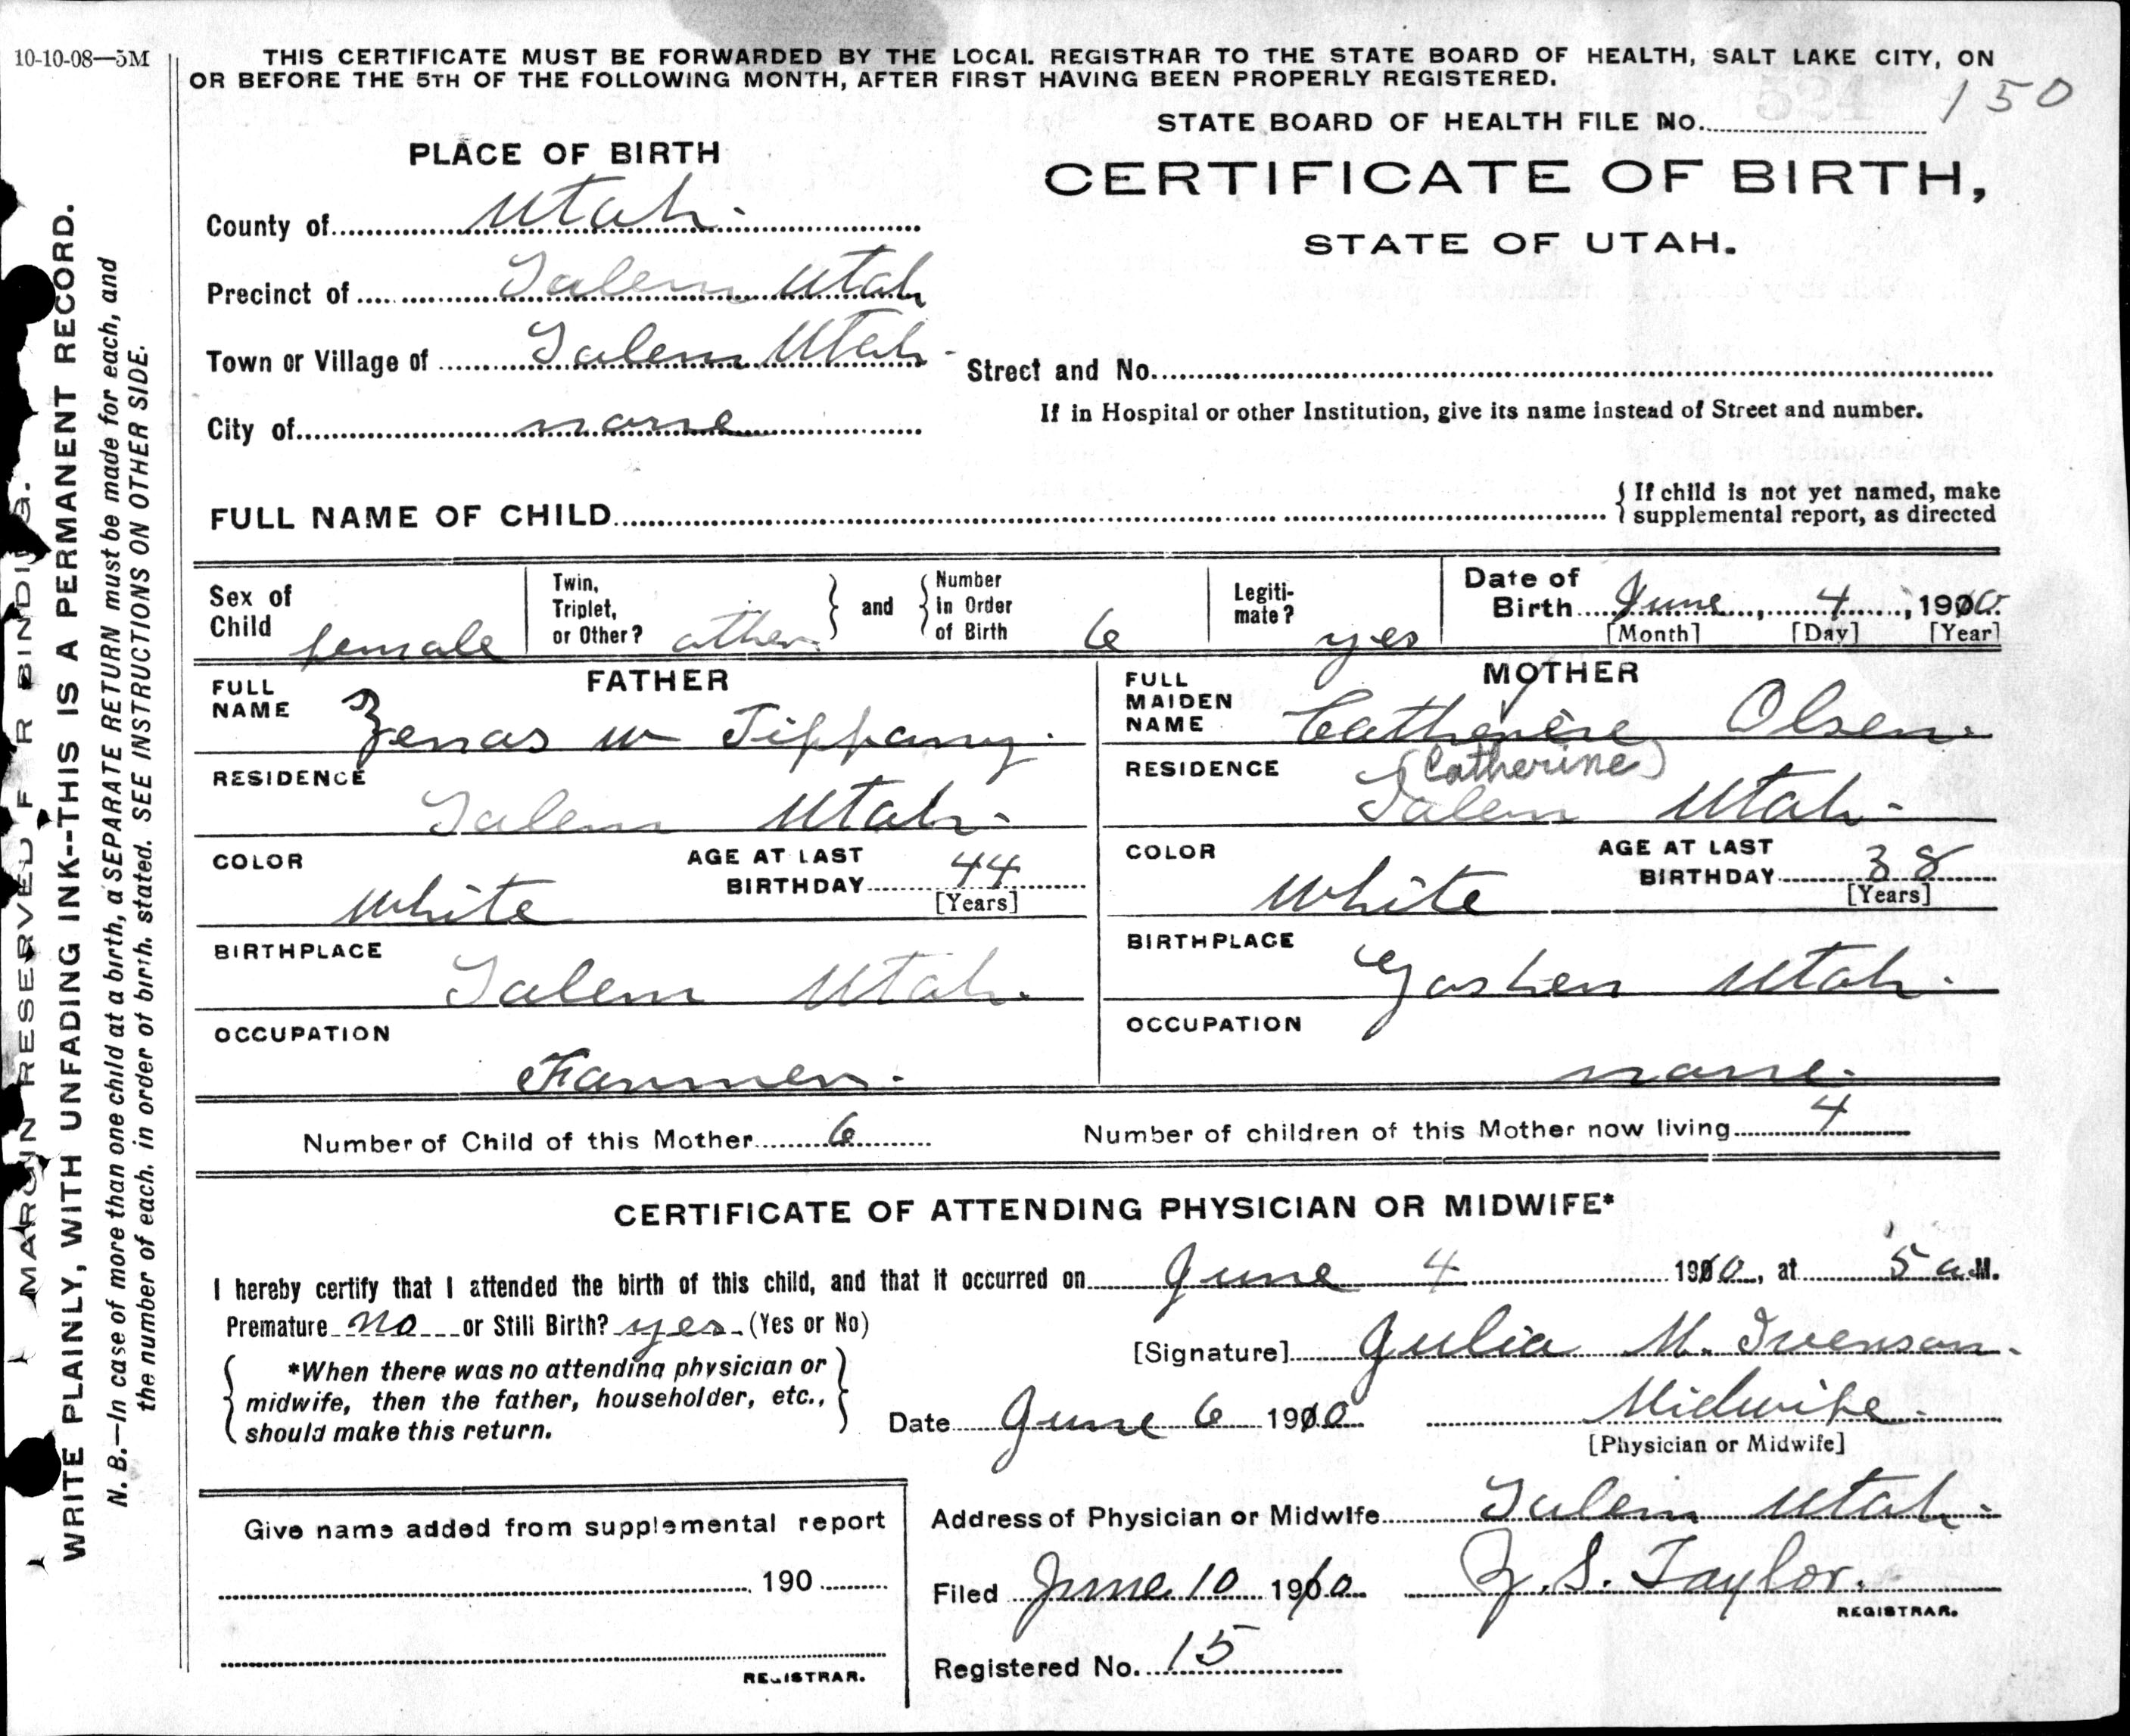 10-10-08—5M
THIS CERTIFICATE MUST BE FORWARDED BY THE LOCAL REGISTRAR TO THE STATE BOARD OF HEALTH, SALT LAKE CITY, ON
OR BEFORE THE 5TH OF THE FOLLOWING MONTH, AFTER FIRST HAVING BEEN PROPERLY REGISTERED.
150
STATE BOARD OF HEALTH FILE NO.
PLACE OF BIRTH
CERTIFICATE OF BIRTH,
STATE OF UTAH.
County of Utah.
Precinct of Salem Utah
Town or Village of Salem Utah -
Street and No.
If in Hospital or other Institution, give its name instead of Street and number.
City of none
FULL NAME OF CHILD
{ If child is not yet named, make
supplemental report, as directed
Sex of Child female
Twin, Triplet, or Other? other } and { Number in Order of Birth 6
Legiti-mate? yes
Date of Birth June, 4, 1910
[Month] [Day] [Year]
FATHER
FULL NAME Zenas W Tiffany.
RESIDENCE Salem Utah.
COLOR White
AGE AT LAST BIRTHDAY 44
[Years]
BIRTHPLACE Salem Utah.
OCCUPATION Farmer.
MOTHER
FULL MAIDEN NAME Cathenere Olsen.
(Catherine)
RESIDENCE Salem Utah.
COLOR White
AGE AT LAST BIRTHDAY 38
[Years]
BIRTHPLACE Goshen Utah.
OCCUPATION none.
Number of Child of this Mother 6
Number of children of this Mother now living 4
CERTIFICATE OF ATTENDING PHYSICIAN OR MIDWIFE*
I hereby certify that I attended the birth of this child, and that it occurred on June 4 1910, at 5 a.M.
Premature no or Still Birth? yes. (Yes or No)
[Signature] Julia M. Ivenson.
{ *When there was no attending physician or
midwife, then the father, householder, etc.,
should make this return. }
Date June 6 1910
Midwife.
[Physician or Midwife]
Address of Physician or Midwife Salem Utah.
Give name added from supplemental report
190
REGISTRAR.
Filed June 10 1910
Z. S. Taylor.
REGISTRAR.
Registered No. 15
MARGIN RESERVED F R BINDING.
WRITE PLAINLY, WITH UNFADING INK--THIS IS A PERMANENT RECORD.
N. B.—In case of more than one child at a birth, a SEPARATE RETURN must be made for each, and
the number of each, in order of birth, stated. SEE INSTRUCTIONS ON OTHER SIDE.